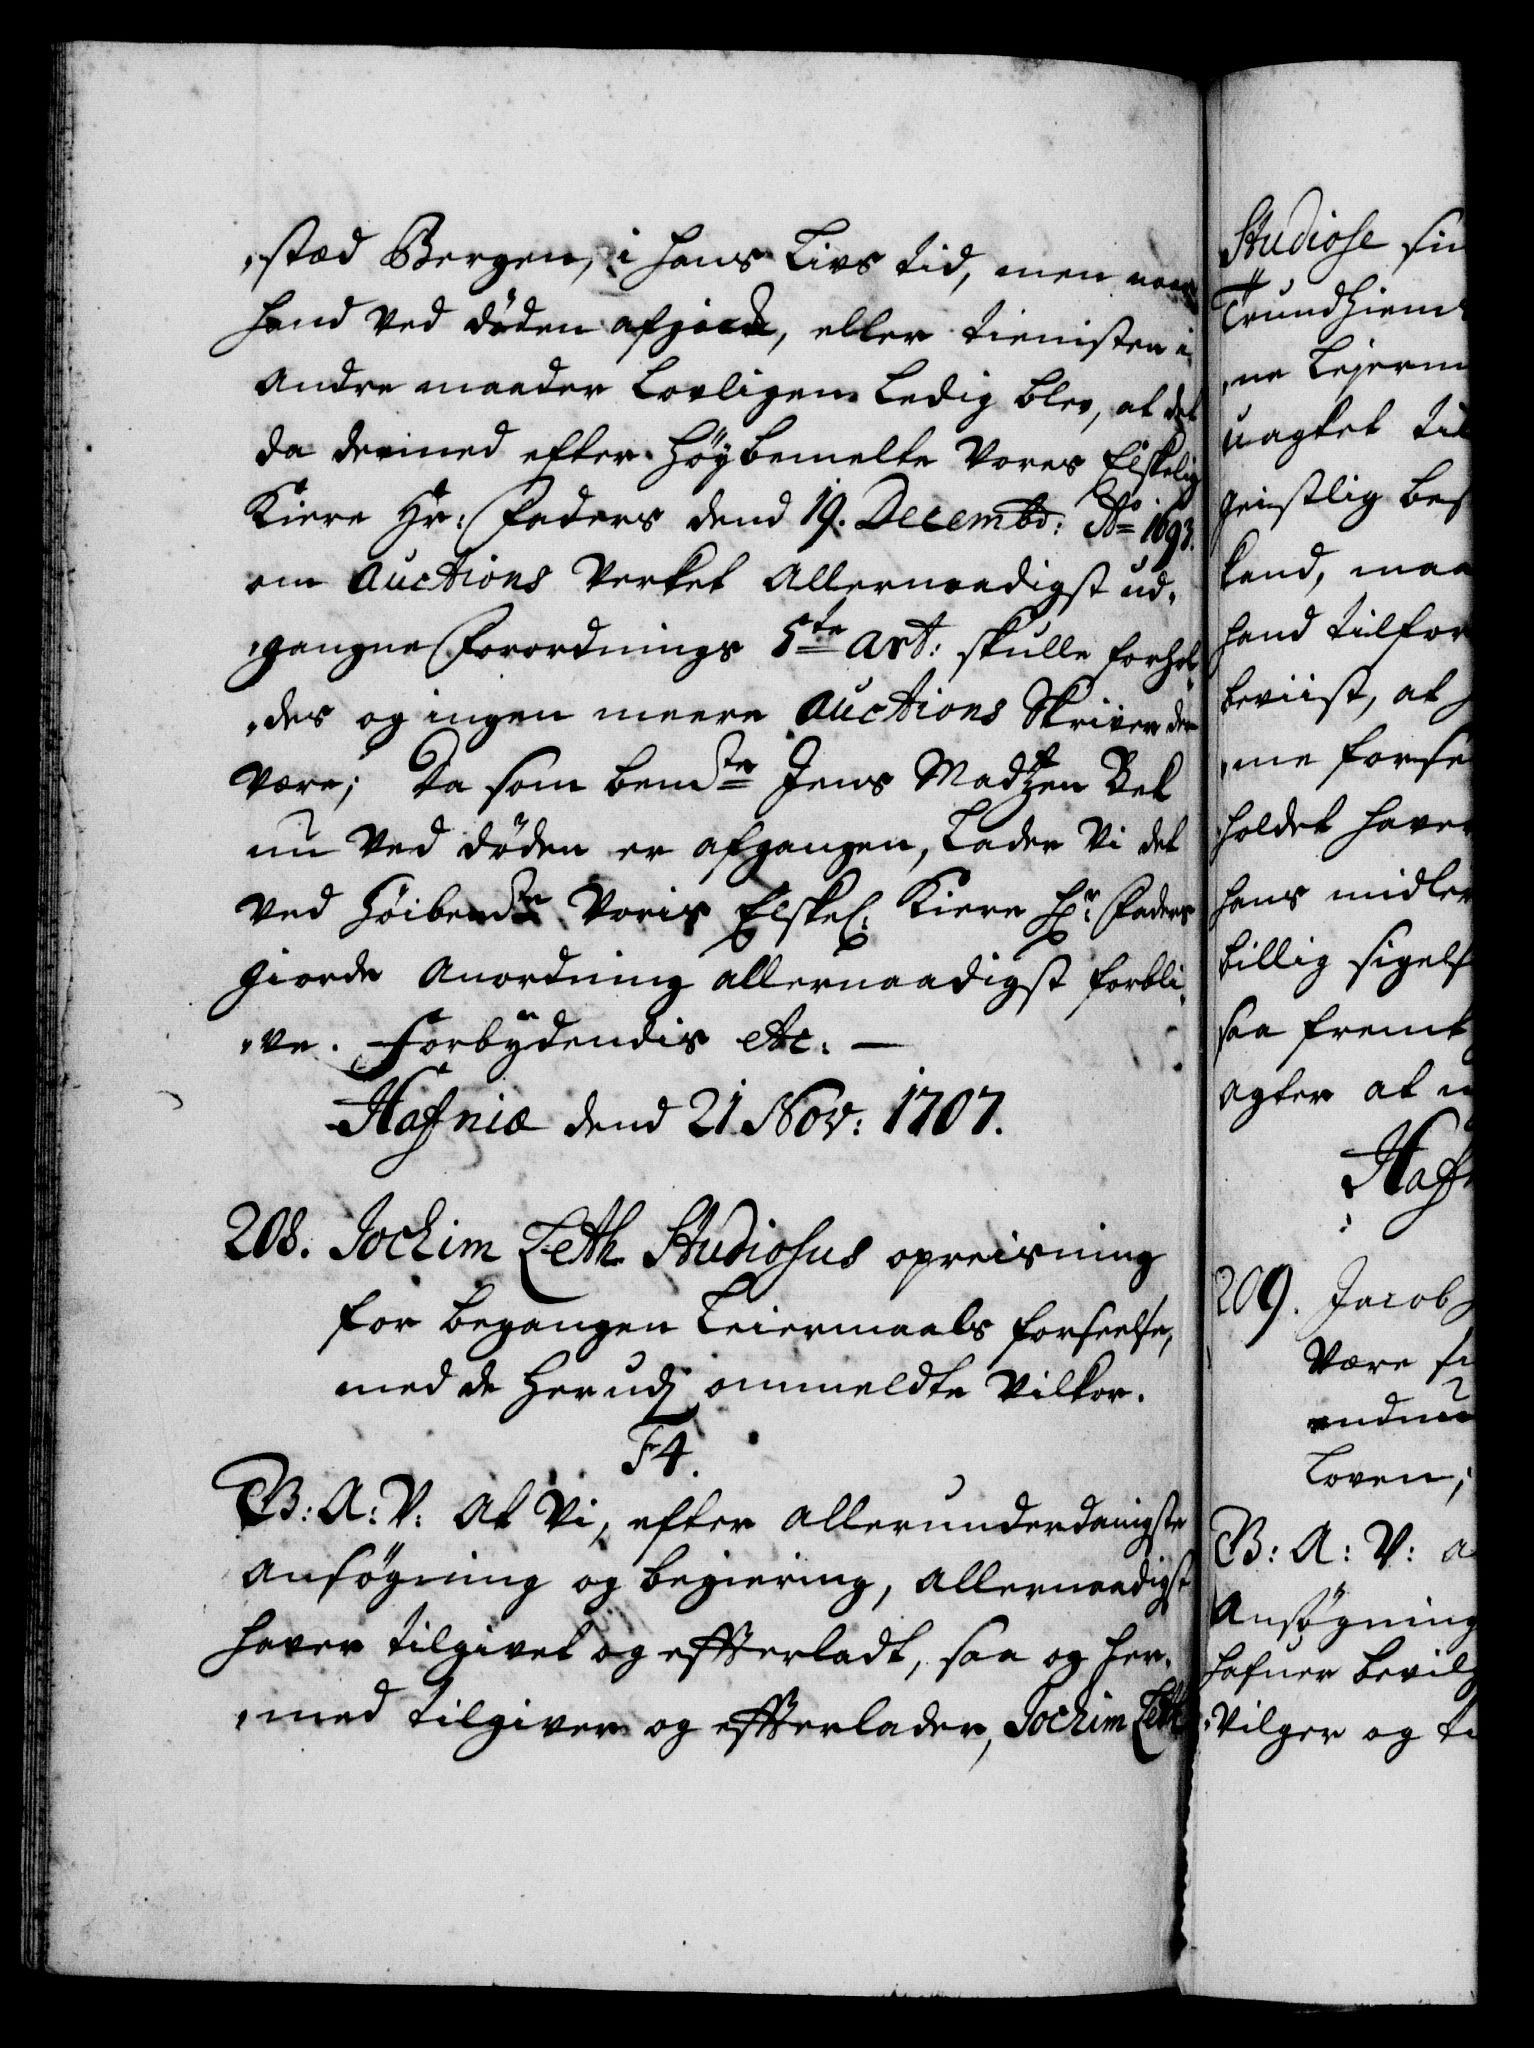 ,stæd Bergen, i hans Livs tid, men naar
hand ved döden afgick, eller tienisten i
andre maader Lovligen Ledig blev, at det
da dermed efter Höybemelte Vores Elskelig
Kiere Hr: Faders dend 19. Decembr: Ao 1693.
om Auctions Verket Allernaadigst ud„
„gangne Forordnings 5te Art: skulle forhol„
„des og ingen meere Auctions Skriver der
være; Da som bemte Jens Madtzen Bek
nu ved döden er afgangen, Lader Vi det
ved Höibemte Voris Elskel: Kiere Hr: Faders
giorde Anordning allernaadigst forbli„
„ve. Forbydendis etc: —
Hafniæ dend 21. Nov: 1707.
208. Jochim Leth Studiosus opreisning
for begangen Leiermaals forseelse,
med de herudj ommeldte Vilkor.
F4.
B: A: V: At Vi, efter allerunderdanigste
ansögning og begiering, allernaadigst
haver tilgivet og efterladt, saa og her„
„med tilgiver og efterlader, Jochim Leth
Studiose sin
Trundhiem
„ne Lejerm
uagtet til
geistlig bes
kand, maa
hand tilfor
beviist, at
„me forse
holdet haver
hans midler
billig sigelse
saa fremt
agter at
Haf
209. Jacob
være
endnu
Loven;
B: A: V: a
Ansögning
hafuer bevilg
„vilger og ti